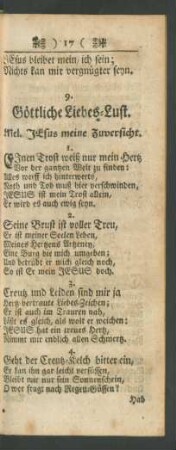 ) 17 (
JEsus bleibet mein, ich sein;
Nichts kan mir vergnügter seyn.
9.
Göttliche Liebes-Lust.
Mel. JEsus meine Zuversicht.
1.
EInen Trost weiß nur mein Hertz
Vor der gantzen Welt zu finden:
Alles werff ich hinterwerts,
Noth und Tod muß hier verschwinden,
JESUS ist mein Trost allein,
Er wird es auch ewig seyn.
2.
Seine Brust ist voller Treu,
Er ist meiner Seelen Leben,
Meines Hertzens Artzeney,
Eine Burg die mich umgeben;
Und betrübt er mich gleich noch,
So ist Er mein JESUS doch.
3.
Creutz und Leiden sind mir ja
Hertz vertraute Liebes-Zeichen;
Er ist auch im Trauren nah,
läst es gleich, als wolt er weichen:
JESUS hat ein treues Hertz,
Nimmt mir endlich allen Schmertz.
4.
Geht der Creutz-Kelch bitter ein,
Er kan ihn gar leicht versüssen,
Bleibt nur mir sein Sonnenschein,
O wer fragt nach Regen-Güssen?
Hab